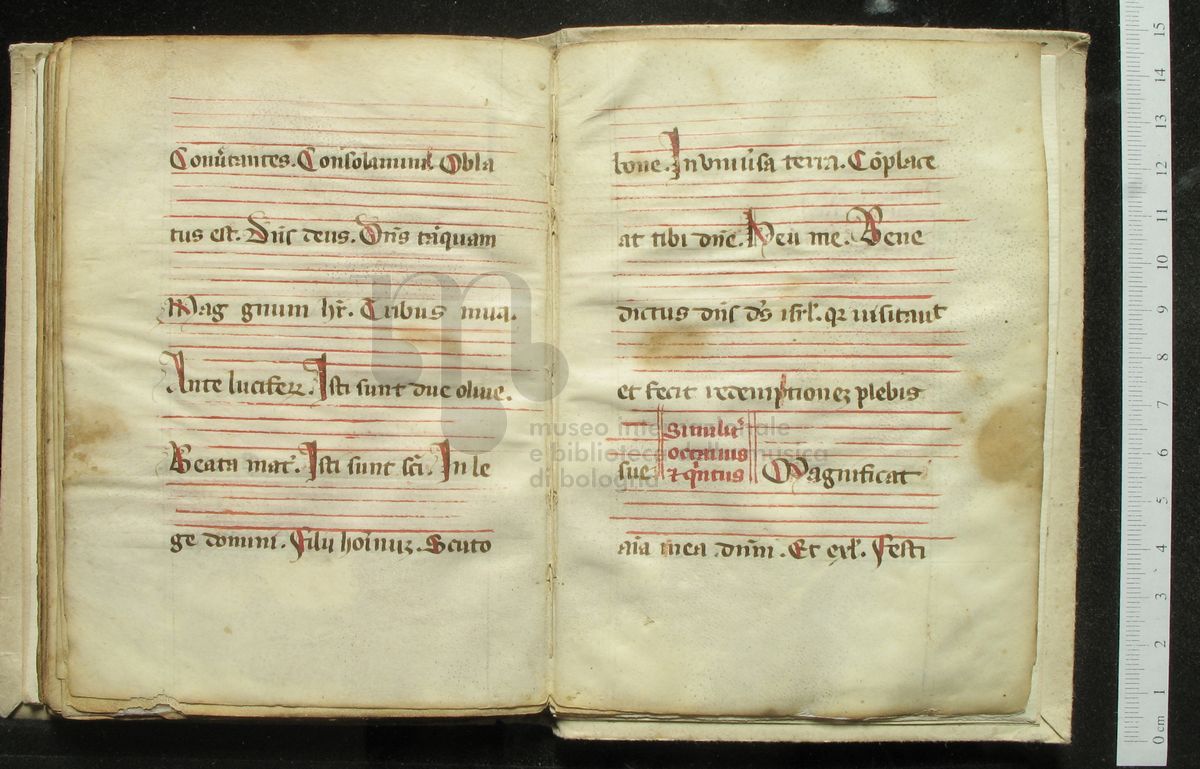 Conuͥtantes. Consolamini. Obla
tus est. Dn̄s deus. Om̄s tanquam
Mag gnum hr̄. Tribus mira.
Ante luciferꝝ. Isti sunt due oliue.
Beata mat᷑. Isti sunt sc̄i. In le
ge domini. Filij hom̄nuꝫ. Scuto
bone. In uniuͥsa terra. Cōplace
at tibi dn̄e. Heu me. Bene
dictus dn̄s ds̄ isrl̄. qꝛ uisitauit
et fecit redemptioneꝫ plebis
sue Simiĺr octauus ⁊ qͥntus Magnificat
aīa mea dnm̄. Et exl̄. Festi
museo internazionale
e biblioteca della musica
di bologna
15
14
13
12
11
10
9
8
7
6
5
4
3
2
1
0 cm